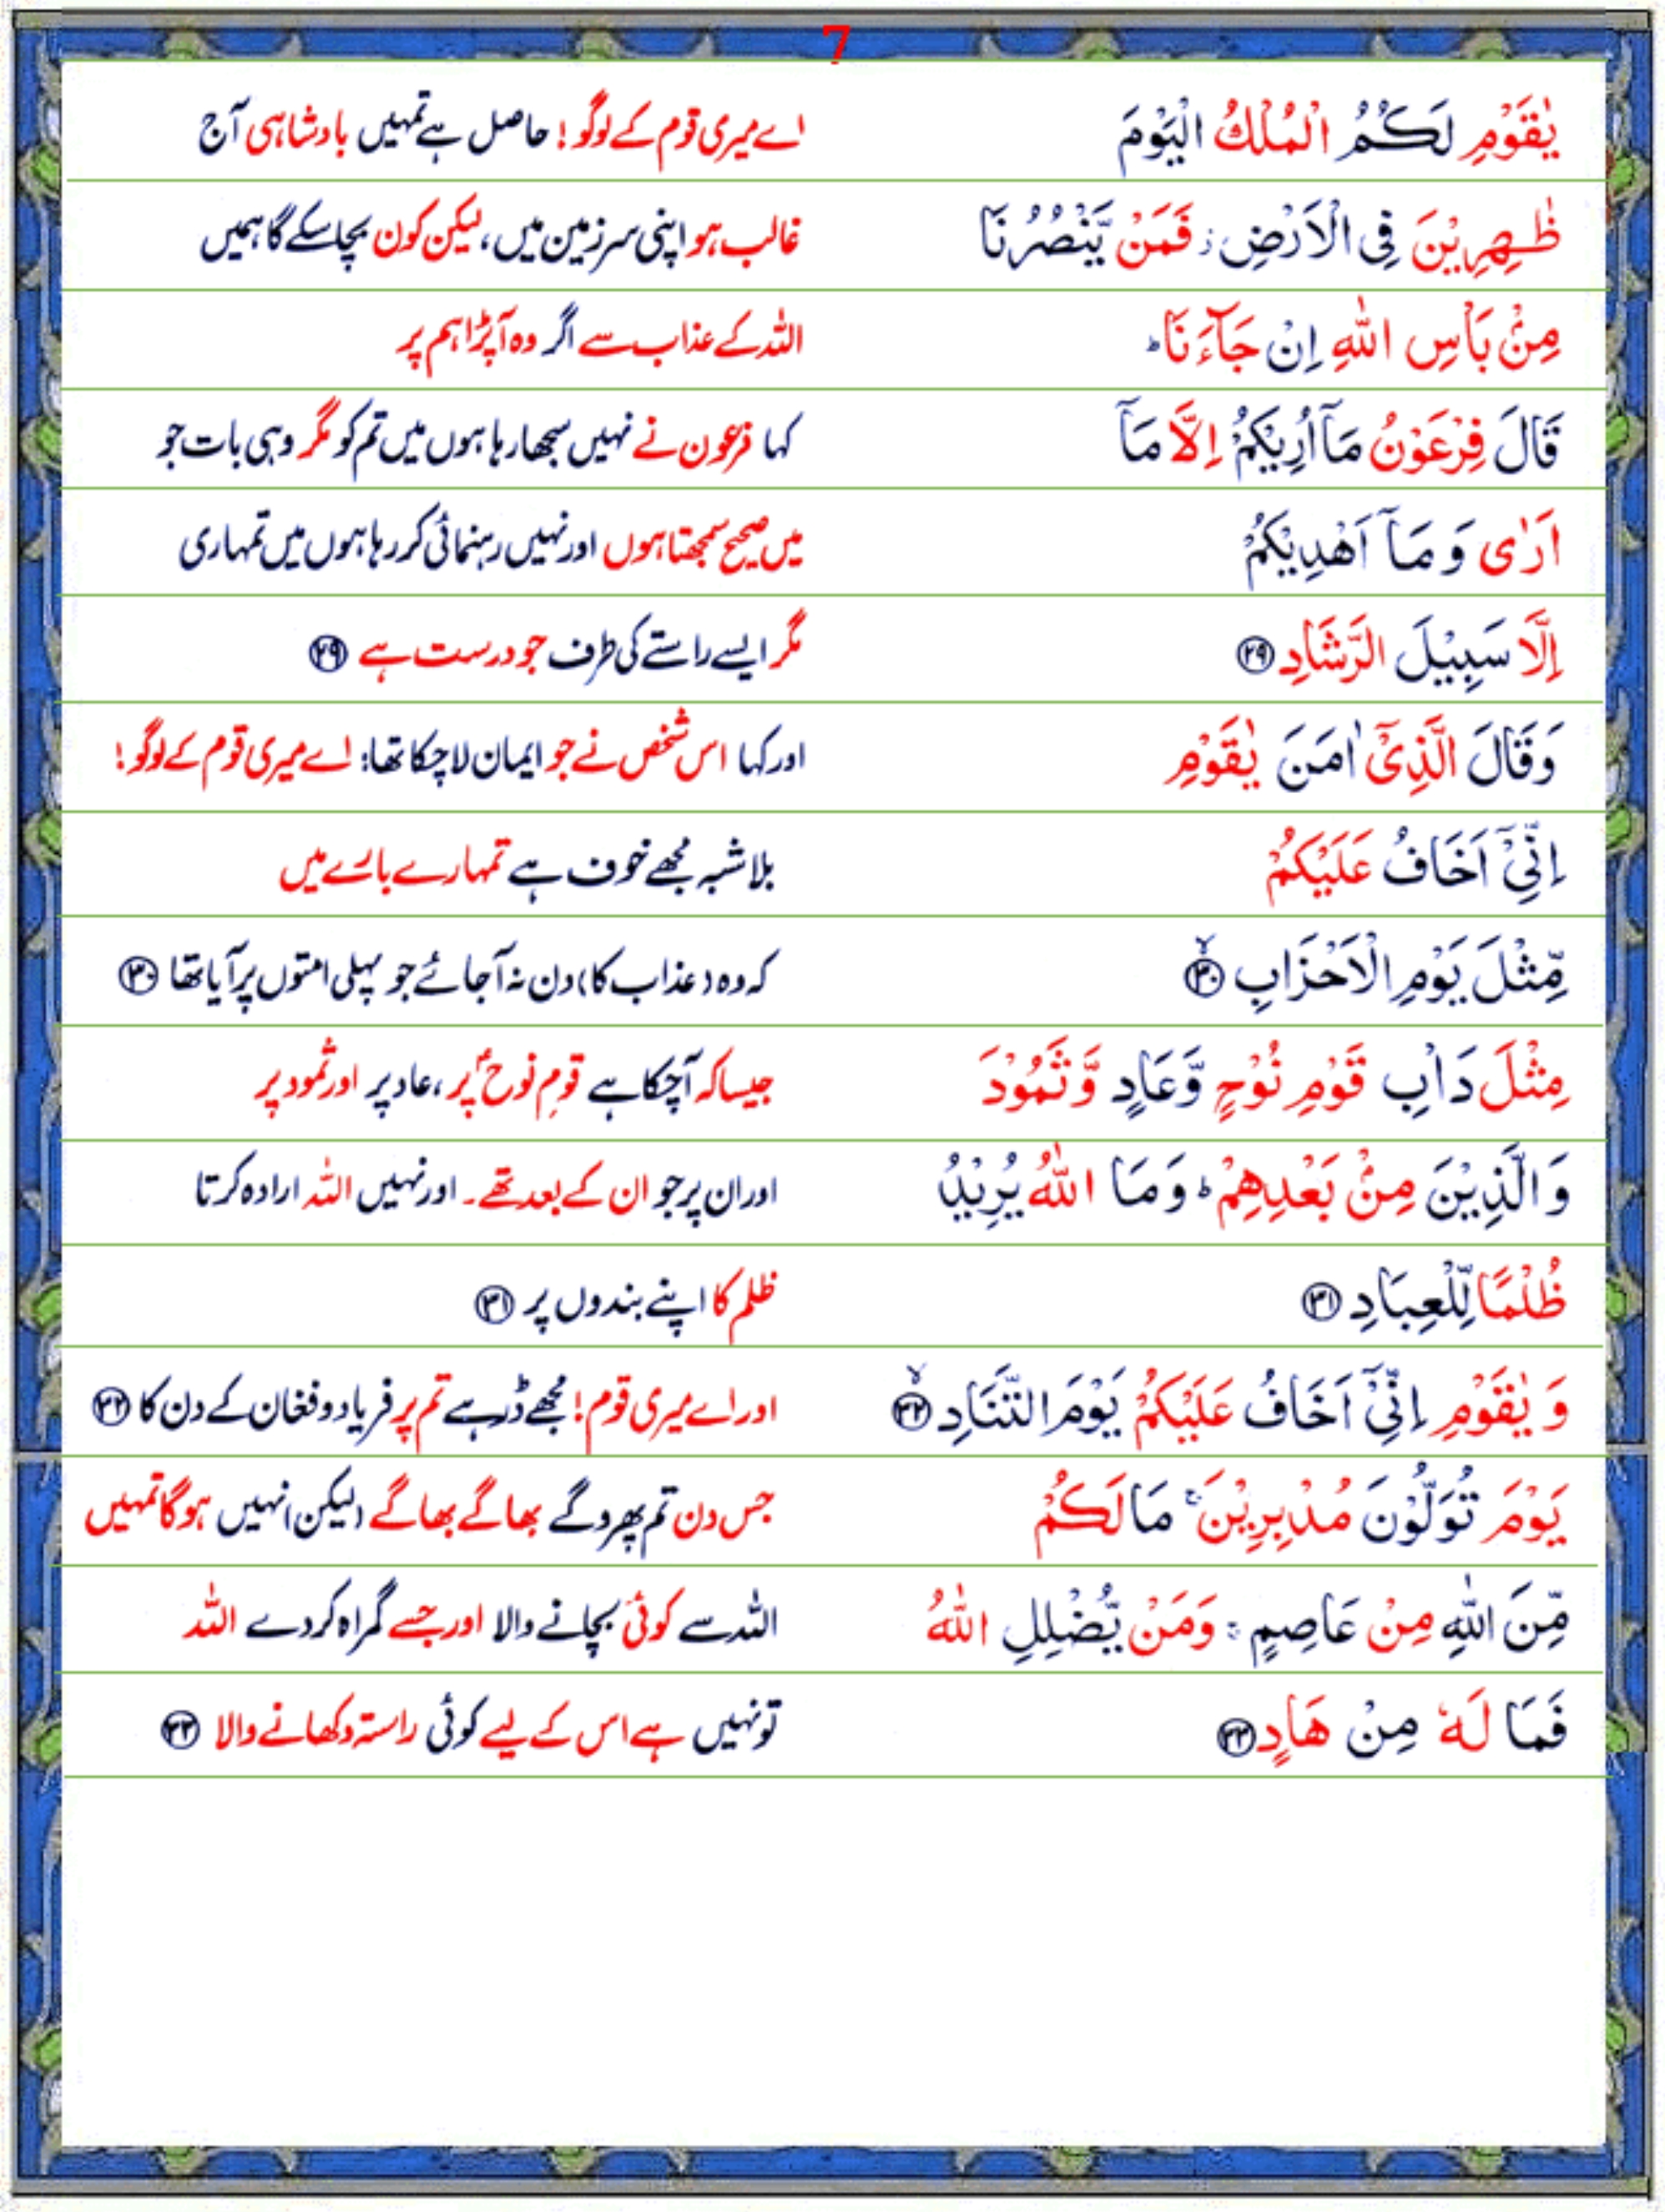 7
يٰقَوْمِ لَكُمُ الْمُلْكُ الْيَوْمَ اے میری قوم کے لوگو! حاصل ہے تمہیں بادشاہی آج
ظٰهِرِيْنَ فِي الْاَرْضِ ز فَمَنْ يَّنْصُرُنَا غالب ہو اپنی سرزمین میں، لیکن کون بچا سکے گا ہمیں
مِنْۢ بَاْسِ اللّٰهِ اِنْ جَآءَنَا ؕ اللہ کے عذاب سے اگر وہ آپڑا ہم پر
قَالَ فِرْعَوْنُ مَآ اُرِيْكُمْ اِلَّا مَآ کہا فرعون نے نہیں سجھا رہا ہوں میں تم کو مگر وہی بات جو
اَرٰى وَمَآ اَهْدِيْكُمْ میں صحیح سمجھتا ہوں اور نہیں رہنمائی کر رہا ہوں میں تمہاری
اِلَّا سَبِيْلَ الرَّشَادِ ۲۹ مگر ایسے راستے کی طرف جو درست ہے ۲۹
وَقَالَ الَّذِيْٓ اٰمَنَ يٰقَوْمِ اور کہا اس شخص نے جو ایمان لا چکا تھا: اے میری قوم کے لوگو!
اِنِّيْٓ اَخَافُ عَلَيْكُمْ بلاشبہ مجھے خوف ہے تمہارے بارے میں
مِّثْلَ يَوْمِ الْاَحْزَابِ ۳۰ کہ وہ (عذاب کا) دن نہ آجائے جو پہلی امتوں پر آیا تھا ۳۰
مِثْلَ دَاْبِ قَوْمِ نُوْحٍ وَّعَادٍ وَّثَمُوْدَ جیسا کہ آچکا ہے قومِ نوحؑ پر، عاد پر اور ثمود پر
وَالَّذِيْنَ مِنْۢ بَعْدِهِمْ ؕ وَمَا اللّٰهُ يُرِيْدُ اور ان پر جو ان کے بعد تھے۔ اور نہیں اللہ ارادہ کرتا
ظُلْمًا لِّلْعِبَادِ ۳۱ ظلم کا اپنے بندوں پر ۳۱
وَيٰقَوْمِ اِنِّيْٓ اَخَافُ عَلَيْكُمْ يَوْمَ التَّنَادِ ۳۲ اور اے میری قوم! مجھے ڈر ہے تم پر فریاد و فغان کے دن کا ۳۲
يَوْمَ تُوَلُّوْنَ مُدْبِرِيْنَ ۚ مَا لَكُمْ جس دن تم پھرو گے بھاگے بھاگے (لیکن) نہیں ہوگا تمہیں
مِّنَ اللّٰهِ مِنْ عَاصِمٍ ۚ وَمَنْ يُّضْلِلِ اللّٰهُ اللہ سے کوئی بچانے والا اور جسے گمراہ کر دے اللہ
فَمَا لَهٗ مِنْ هَادٍ ۳۳ تو نہیں ہے اس کے لیے کوئی راستہ دکھانے والا ۳۳